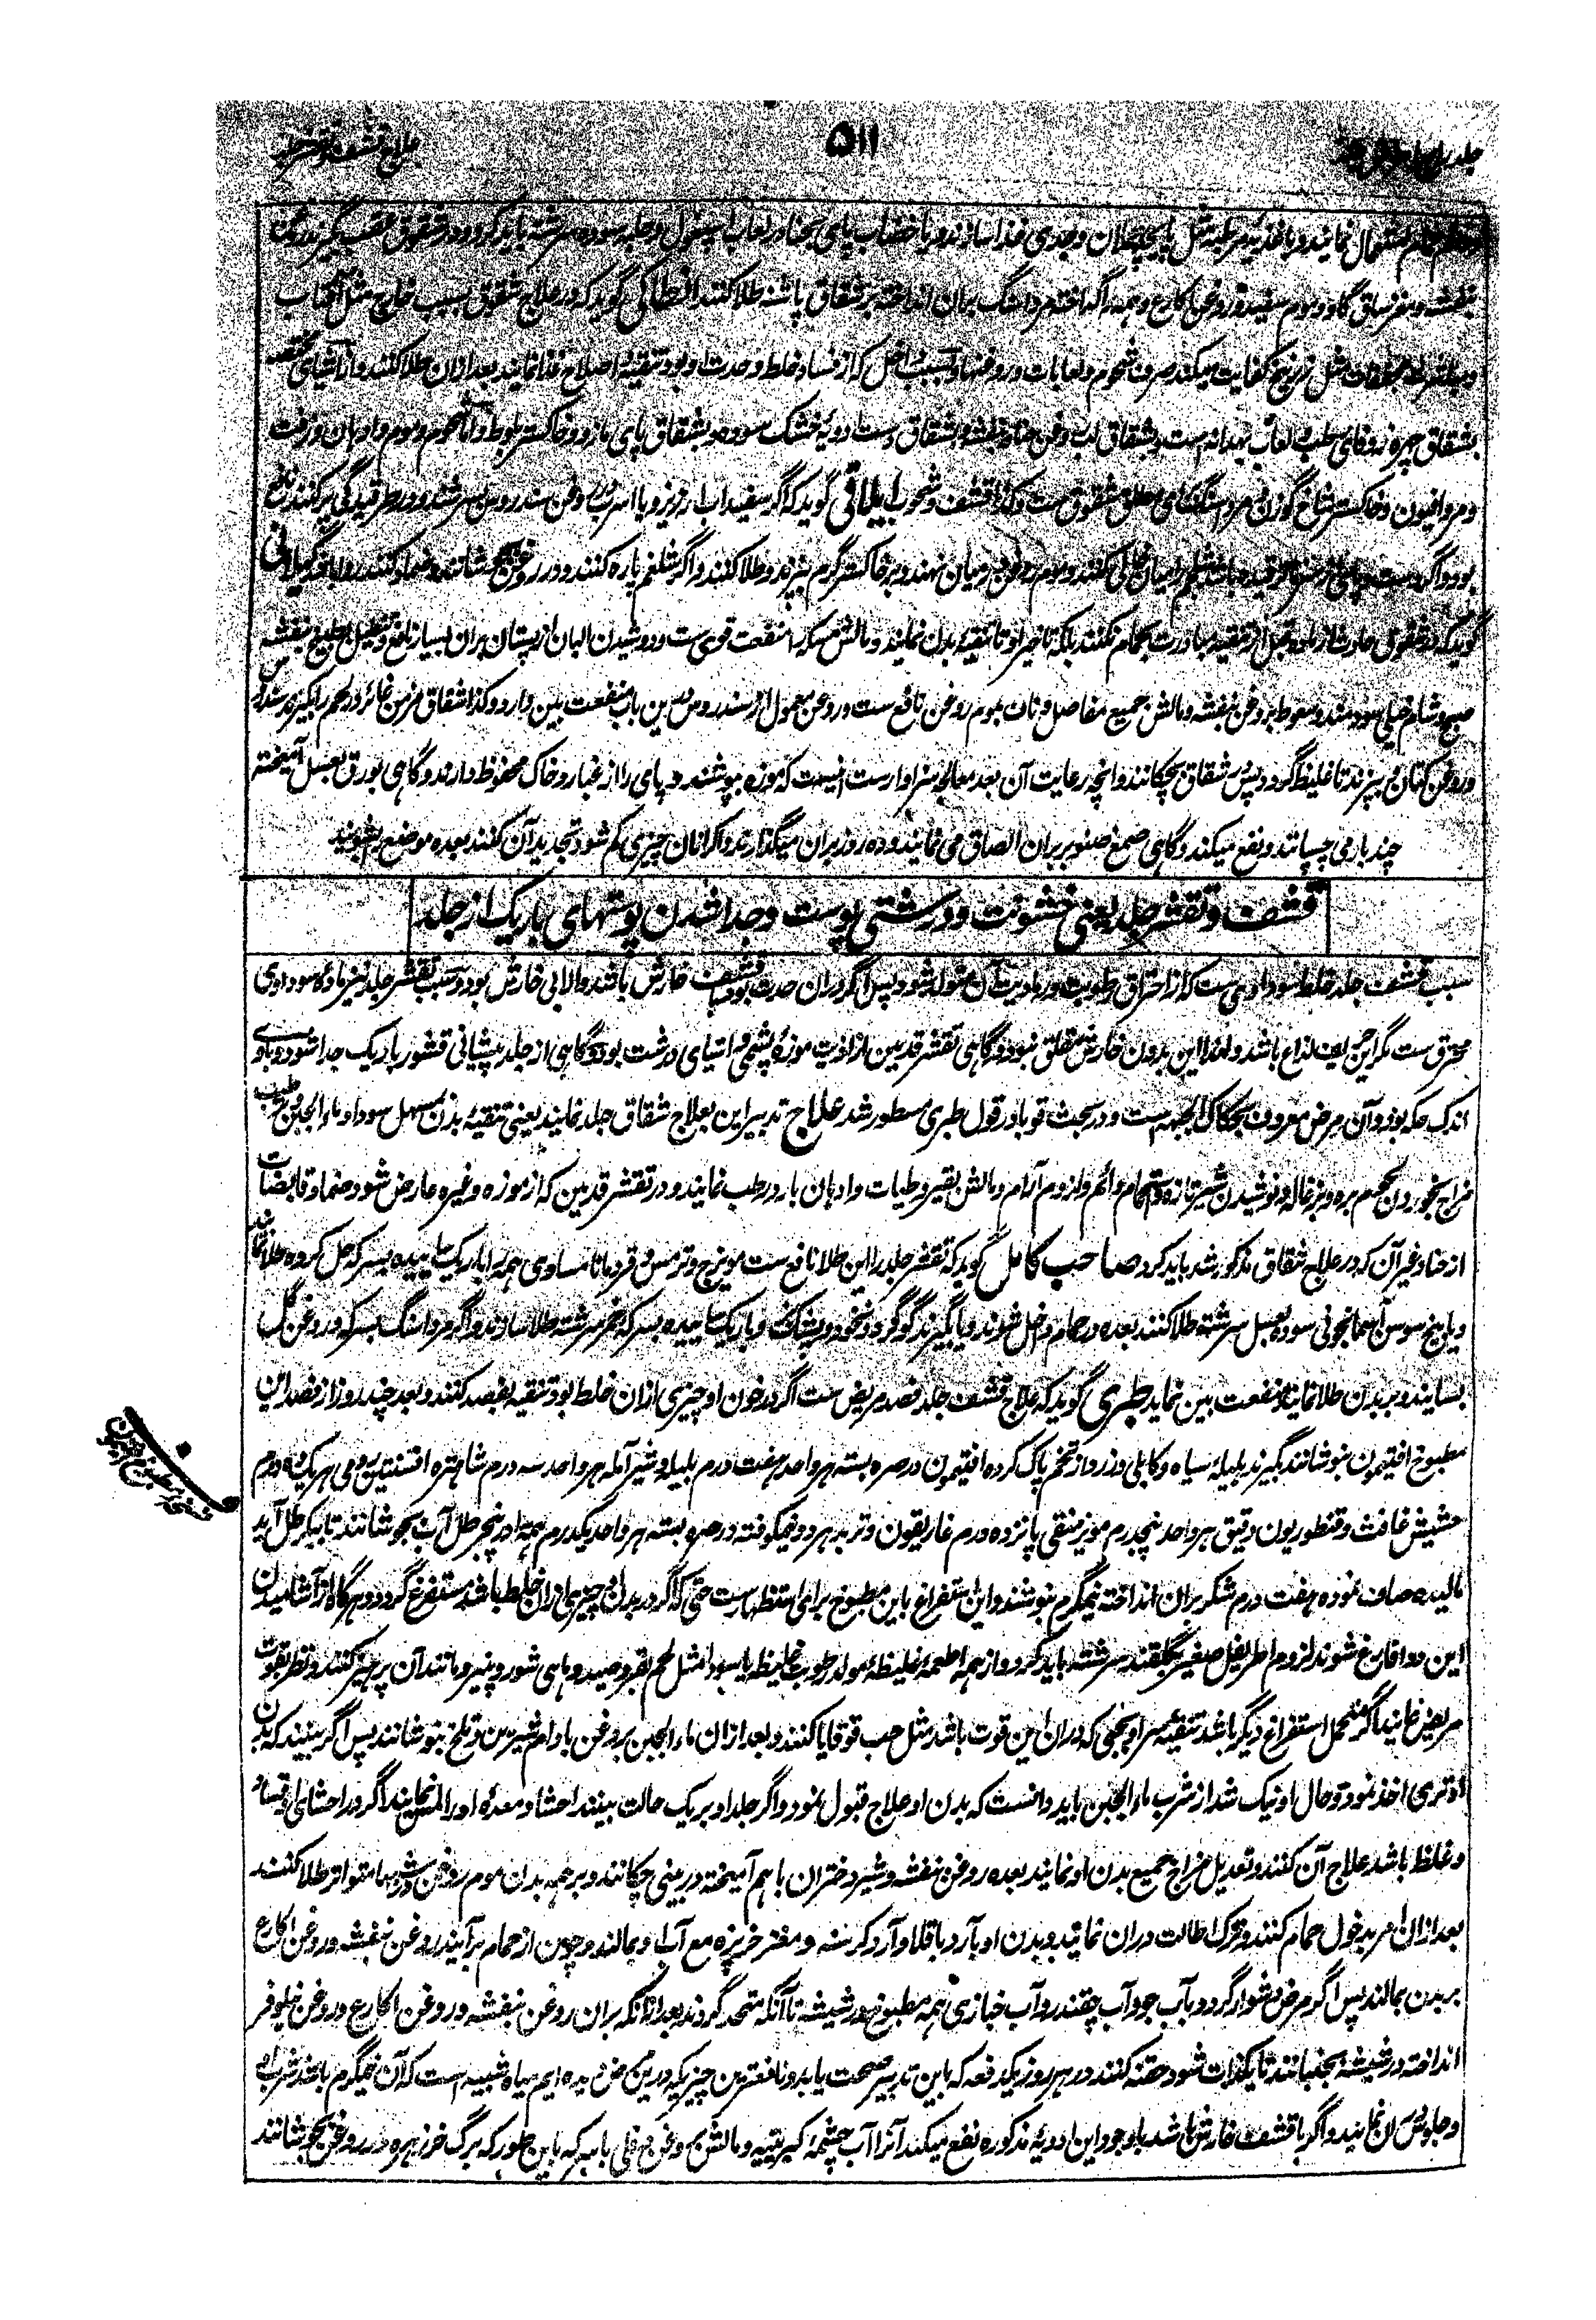 علاج قشف و تقشر جلد
۵۱۱
استعمال نمایند و باغذیه مرطبه مثل پاچه حملان و جدی غذا سازند و با خضاب پای بحنا در لعاب اسپغول و حلبه سوده سرشته باید کرد و در شقوق عقب بگیرند روغن
بنفشه و مغز ساق گاو و موم سفید و روغن اکارع و همه را گداخته مردارسنگ بران انداخته بر شقاق پاشنه طلا کنند انطاکی گوید که در علاج شقوق بسبب خارج مثل آفتاب
کفایت میکند صرف شحوم و لعابات و روغنها و بسبب داخل که از فساد خلط و حدت او بود تنقیه و اصلاح غذا نمایند بعد ازان طلا کنند و اما اشیای مختصه
بشقاق چهره زوفای رطب و لعاب بهدانه است و بشقاق لب روغن حنا و بنفشه و بشقاق دست ادویه خشک سوده و بشقاق پای مازو و خاکستر بلوط و اما شحوم و موم و ادهان و زفت
و مر و افیون و خاکستر شاخ گوزن و مرداسنگ برای مطلق شقوق ست و کذا قشف و شحوب ایلاقی گوید که اگر سفیداب ارزیز و یا اسرب بروغن سندروس سرشند و در طرقیدگی پر کنند نافع
بود و اگر دست و پای از سرما طرقیده باشد شلغم را میان خالی کنند و موم روغن در میان نهند و بر خاکستر گرم بپزند و طلا کنند و اگر شلغم پاره کنند و در روغن بجوشانند و ضماد کنند روا باشد گیلانی
گوید که در شقوق حادث از ماده قبل از تنقیه مبادرت بحمام نکنند بلکه تاخیر او تا تنقیه بدن نمایند و مالش مسکه را منفعت قوی ست و دوشیدن البان از پستان بران بسیار نافع و تحلیل لعوق بنفشه
صبح و شام خیلی سودمند و سعوط بروغن بنفشه و مالش جمیع مفاصل و ناف بموم روغن نافع ست و روغن معمول از سندروس درین باب منفعت بین دارد و کذا شقاق مزمن غائر در لحم را بگیرند سندروس
و روغن کتان بپزند تا غلیظ گردد پس در شقاق بچکانند و آنچه رعایت آن بعد معالجه سزاوارست اینست که موزه بپوشند و پای را از غبار و خاک محفوظ دارند و گاهی بورق بعسل آمیخته
چند بار می چسپانند و نفع میکند و گاهی صمغ صنوبر بران الصاق می نمایند و ده روز بران میگذارند و اگر ازان چیزی کم شود تجدید آن کنند بعده موضع بشویند
قشف و تقشر جلد یعنی خشونت و درشتی پوست و جدا شدن پوستهای باریک از جلد
سبب قشف جلد خلط سوداوی ست که از احتراق رطوبت و رمادیت آن متولد شود پس اگر دران حدت بود با قشف خارش باشد والا بی خارش بود و سبب تقشر جلد نیز مادهٔ سوداوی
محترق ست مگر این حریف لذاع باشد و لهذا این بدون خارش و قلق نبود و گاهی تقشر قدمین از اذیت موزهٔ پشمی و اشیای درشت بود و گاهی از جلد پیشانی قشور باریک جدا شود و با وی
اندک حکه بود و آن مرض معروف بحکاک الجبهه است و در بحث قوبا در قول طبری مسطور شد علاج تدبیر این بعلاج شقاق جلد نمایند یعنی تنقیه بدن بمسهل سودا و ماءالجبن و ترطیب
مزاج بخوردن لحوم بره و بزغاله و نوشیدن شیر تازه و استحمام دائم و لزوم آرام و مالش بقیروطیات و ادهان بارد رطب نمایند و در تقشر قدمین که از موزه و غیره عارض شود ضماد قابضات
از حنا و غیر آن که در علاج شقاق مذکور شد باید کرد صاحب کامل گوید که تقشر جلد را این طلا نافع ست مویزج و ترمس و قردمانا مساوی همه را باریک ساییده بسرکه حل کرده طلا نمایند
و یا بیخ سوسن آسمانجونی سوده بعسل سرشته طلا کنند بعده در حمام داخل شوند و یا بگیرند گوگرد و نخود و پشک و باریک ساییده بسرکه خمر سرشته طلا سازند و اگر مرداسنگ بسرکه و روغن گل
بسایند و بر بدن طلا نمایند منفعت بین نماید طبری گوید که علاج قشف جلد فصد مریض ست اگر در خون او چیزی ازان خلط بود تنقیه بفصد کنند و بعد چند روز از فصد این
مطبوخ افتیمون بنوشانند بگیرند هلیلهٔ سیاه و کابلی و زرد از تخم پاک کرده افتیمون در صره بسته هر واحد هفت درم بلیله و شیر آمله هر واحد سه درم شاهتره افسنتین رومی هر یک ده درم
حشیش غافث و قنطوریون دقیق هر واحد پنجدرم مویز منقی پانزده درم غاریقون و تربد هر دو نیمکوفته در صره بسته هر واحد یکدرم همه را در پنج رطل آب بجوشانند تا بیک رطل آید
مالیده صاف نموده هفت درم شکر بران انداخته نیمگرم بنوشند و این استفراغ باین مطبوخ برای استظهارست حتی که اگر در بدن چیزی ازان خلط باشد مستفرغ گردد و هرگاه از آشامیدن
این دوا فارغ شوند لزوم اطریفل صغیر بگلقند سرشته باید کرد و از همه اطعمه غلیظه مولد رطوبت غلیظه یا سودا مثل لحم بقر و صید و ماهی شور و پنیر و مانند آن پرهیز کنند و نظر بقوت
مریض نمایند اگر متحمل استفراغ دیگر باشد تنقیهٔ سر او بحبی که دران این قوت باشد مثل حب قوقایا کنند و بعد ازان ماءالجبن بروغن بادام شیرین و تلخ بنوشانند پس اگر بینند که بدن
او تری اخذ نمود و حال او نیک شد از شرب ماءالجبن باید دانست که بدن او علاج قبول نمود و اگر جلد او بر یک حالت بینند احشا و معدهٔ او را لمس نمایند اگر در احشای او فساد
و غلظ باشد علاج آن کنند و تعدیل مزاج جمیع بدن او نمایند بعده روغن بنفشه و شیر دختران باهم آمیخته در بینی چکانند و بر همه بدن موم روغن روزها متواتر طلا کنند
بعد ازان امر بدخول حمام کنند و ترک اطالت دران نمایند و بدن او بآرد باقلا و آرد کرسنه و مغز خربزه مع آب او بمالند و چون از حمام برآیند روغن بنفشه و روغن اکارع
بر بدن بمالند پس اگر مرض دشوار گردد بآب جو و آب چقندر و آب خبازی همه مطبوخ در شیشه تا آنکه متحد گردند بعد ازانکه بران روغن بنفشه و روغن اکارع و روغن نیلوفر
انداخته در شیشه بجنبانند تا یکذات شود حقنه کنند در هر روز یکدفعه که باین تدبیر صحت یابد و نافعترین چیزیکه درین مرض دیده ایم میاه شبیه است که آن نیمگرم باشد شرب
و جلوس دران نمایند و اگر با قشف خارش باشد باوجود این ادویهٔ مذکوره نفع میکند آنرا آب چشمهٔ کبریتیه و مالش بروغن دفلی باسرکه باین طور که برگ خرزهره در روغن بجوشانند
نسخه مطبوخ افتیمون